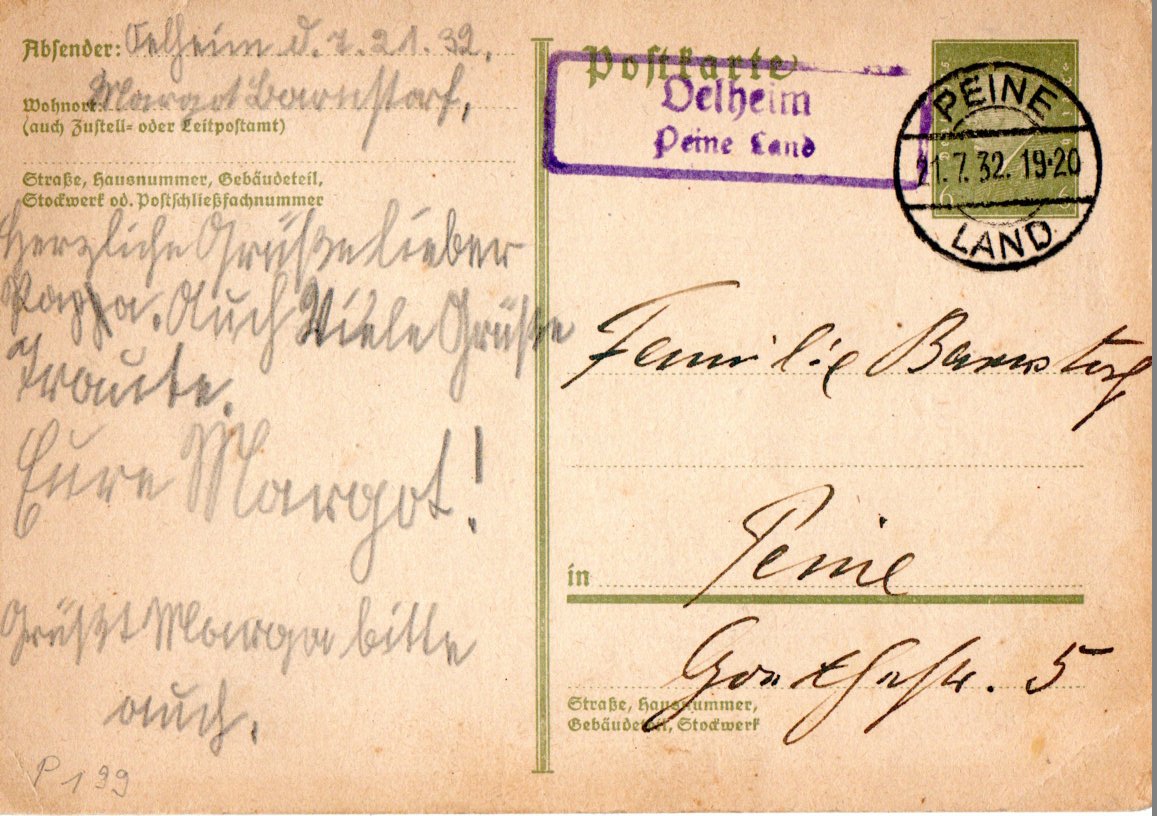 Absender: Oelheim d. 7. 21. 32.
Wohnort: Margot Barnstorf,
(auch Zustell- oder Leitpostamt)
Straße, Hausnummer, Gebäudeteil,
Stockwerk od. Postschließfachnummer
Herzliche Grüße lieber
Pappa. Auch Viele Grüße
Traute.
Eure Margot!
Grüßt Marga bitte
auch.
P 199
Postkarte
Oelheim
Peine Land
PEINE
21.7.32. 19-20
LAND
6 6
Familie Barnstorf
in Peine
Goethestr. 5
Straße, Hausnummer,
Gebäudeteil, Stockwerk